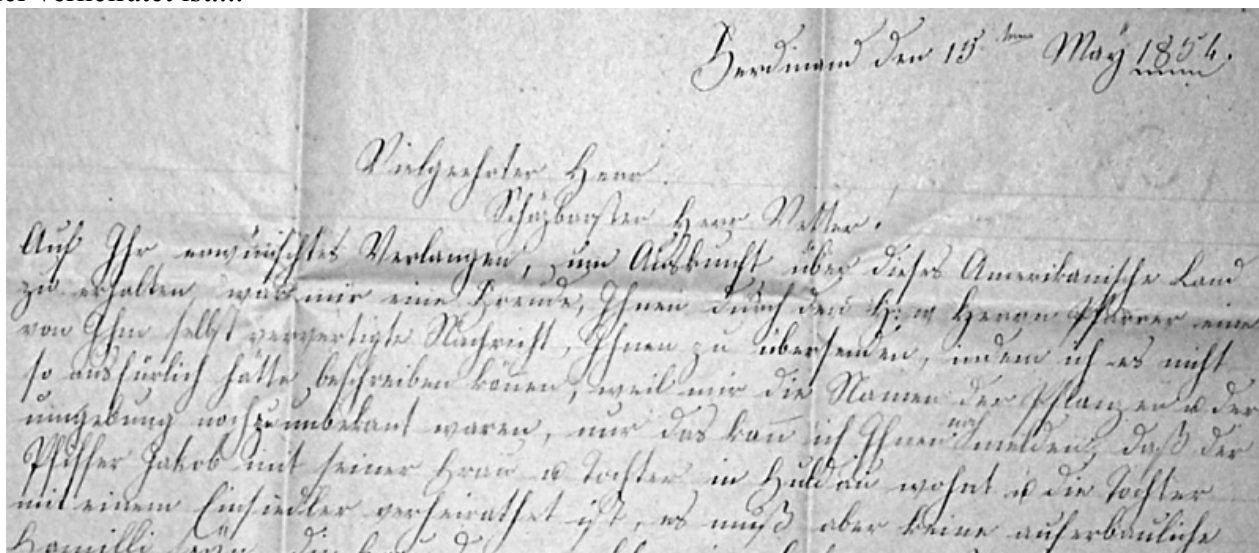 der verheiratet ist....
Ferdinand den 15ten May 1854.
Vielgeehrter Herr
Schäzbarster Herr Vetter!
Auf Ihr erwünschtes Verlangen, um Auskunft über dieses Amerikanische Land
zu erhalten, war mir eine Freude, Ihnen durch den H: w Herrn Pfarrer eine
von Ihm selbst ververtigte Nachricht, Ihnen zu übersenden, indem ich es nicht
so ausfürlich hätte beschreiben könen, weil mir die Namen der Pflanzen u der
umgebung noch zu unbekant waren, nur das kan ich Ihnen noch melden, daß der
Pfiffer Jakob mit seiner Frau u Tochter in Huldau wohnt u die Tochter
mit einem Einsiedler verheirathet ist, es muß aber keine auferbauliche
Hamilli seÿn, die